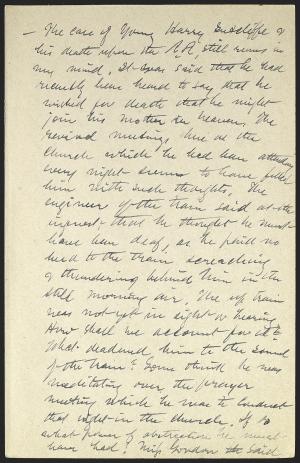 - The case of Young Harry Sutcliffe &
his death upon the R.R. still runs in
my mind. It was said that he had
recently been heard to say that he
wished for death that he might
join his mother in heaven. The
revival meetings here at the
Church which he had been attending
every night seems to have filled
him with such thoughts. The
engineer of the train said at the
inquest that he thought he must
have been deaf, as he paid no
heed to the train screaching
& thundering behind him in the
still morning air. The up train
was not yet in sight or hearing
How shall we account for it?
What deadened him to the sound
of the train? Some think he was
meditating over the prayer
meeting which he was to conduct
that night in the church. If so
what power of abstraction he must
have had! Miss Gordon said